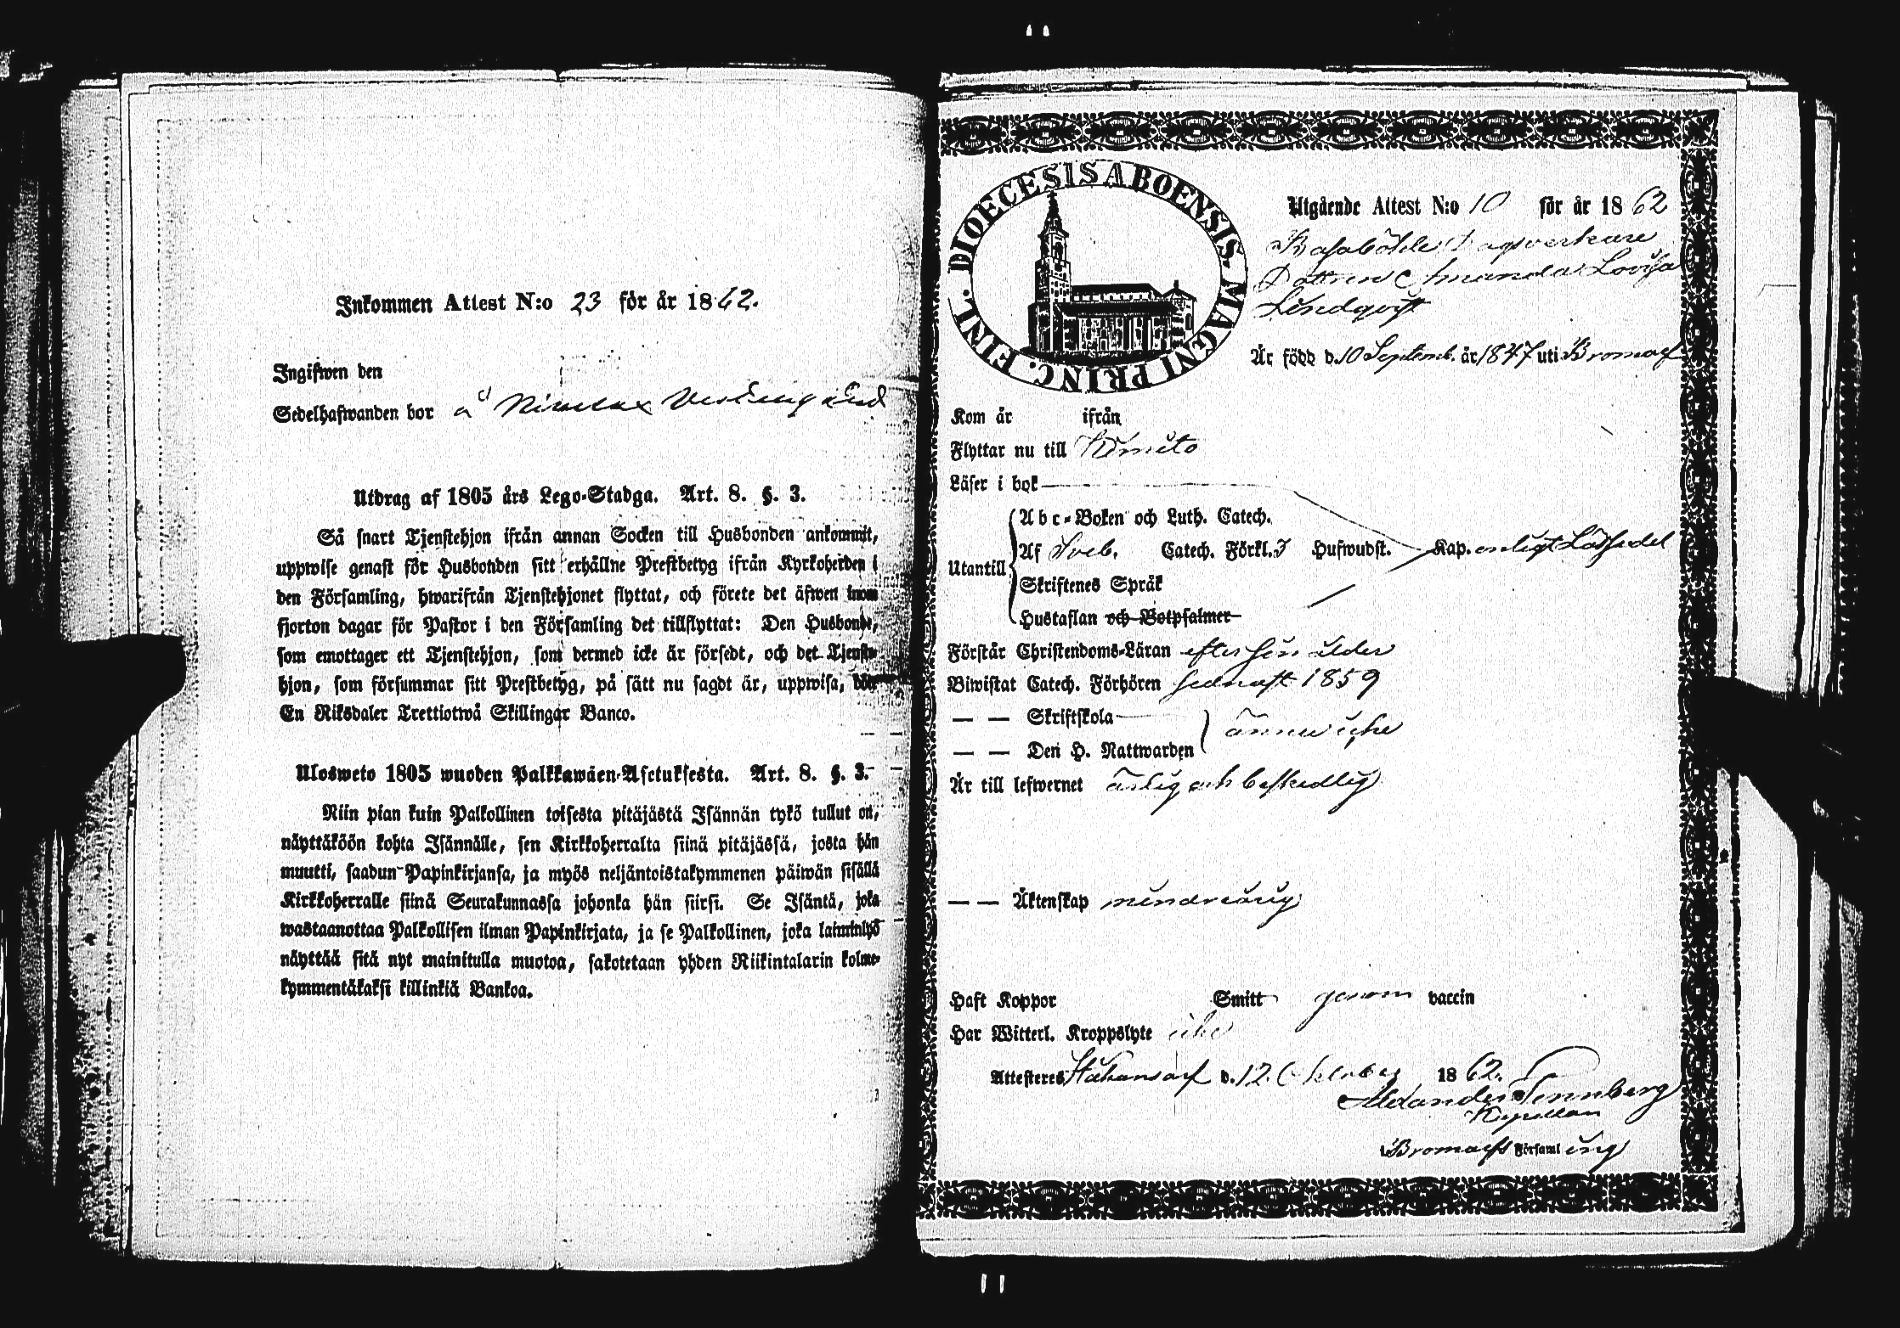 Inkommen Attest N:o 23 för år 1862.
Ingifwen den
Sedelhafwanden bor å
Utdrag af 1805 års Lego-Stadga. Art. 8. §. 3.
Så snart Tjenstehjon ifrån annan Socken till Husbonden ankommit,
uppwise genast för Husbonden sitt erhållne Prestbetyg ifrån Kyrkoherden i
den Församling, hwarifrån Tjenstehjonet flyttat, och förete det äfwen inom
fjorton dagar för Pastor i den Församling det tillflyttat: Den Husbonde,
som emottager ett Tjenstehjon, som dermed icke är försedt, och det Tjenste-
hjon, som försummar sitt Prestbetyg, på sätt nu sagdt är, uppwisa, böte
En Riksdaler Trettiotwå Skillingar Banco.
Ulosweto 1805 wuoden Palkkawäen-Asetuksesta. Art. 8. §. 3.
Niin pian kuin Palkollinen toisesta pitäjästä Isännän tykö tullut on,
näyttäköön kohta Isännälle, sen Kirkkoherralta siinä pitäjässä, josta hän
muutti, saadun Papinkirjansa, ja myös neljäntoistakymmenen päiwän sisällä
Kirkkoherralle siinä Seurakunnassa johonka hän siirsi. Se Isäntä, joka
wastaanottaa Palkollisen ilman Papinkirjata, ja se Palkollinen, joka laiminlyö
näyttää sitä nyt mainitulla muotoa, sakotetaan yhden Riikintalarin kolme-
kymmentäkaksi killinkiä Bankoa.
DIOECESIS ABOENSIS. MAGNI PRINC. FINL.
Utgående Attest N:o 10 för år 1862
Dottren Amanda Lovisa
Lindqvist
Är född d. 10 Septemb. år 1847 uti Bromarf
Kom år ifrån
Flyttar nu till Kimito
Läser i bok
Utantill
Abc-Boken och Luth. Catech.
Af Sveb. Catech. Förkl. 3 Hufwudst. Kap. enligt Läsesedel
Skriftenes Språk
Hustaflan och Botpsalmer
Förstår Christendoms-Läran efter sin ålder
Biwistat Catech. Förhören sednast 1859
— — Skriftskola
ännu icke
— — Den H. Nattwarden
Är till lefwernet ärlig och beskedlig
— — Äktenskap minderårig
Haft Koppor Smitt genom vaccin
Har Witterl. Kroppslyte icke
Attesteres Håkansarf d. 12 Oktober 1862.
Alexander Tennberg
Kapellan
i Bromarfs Församling